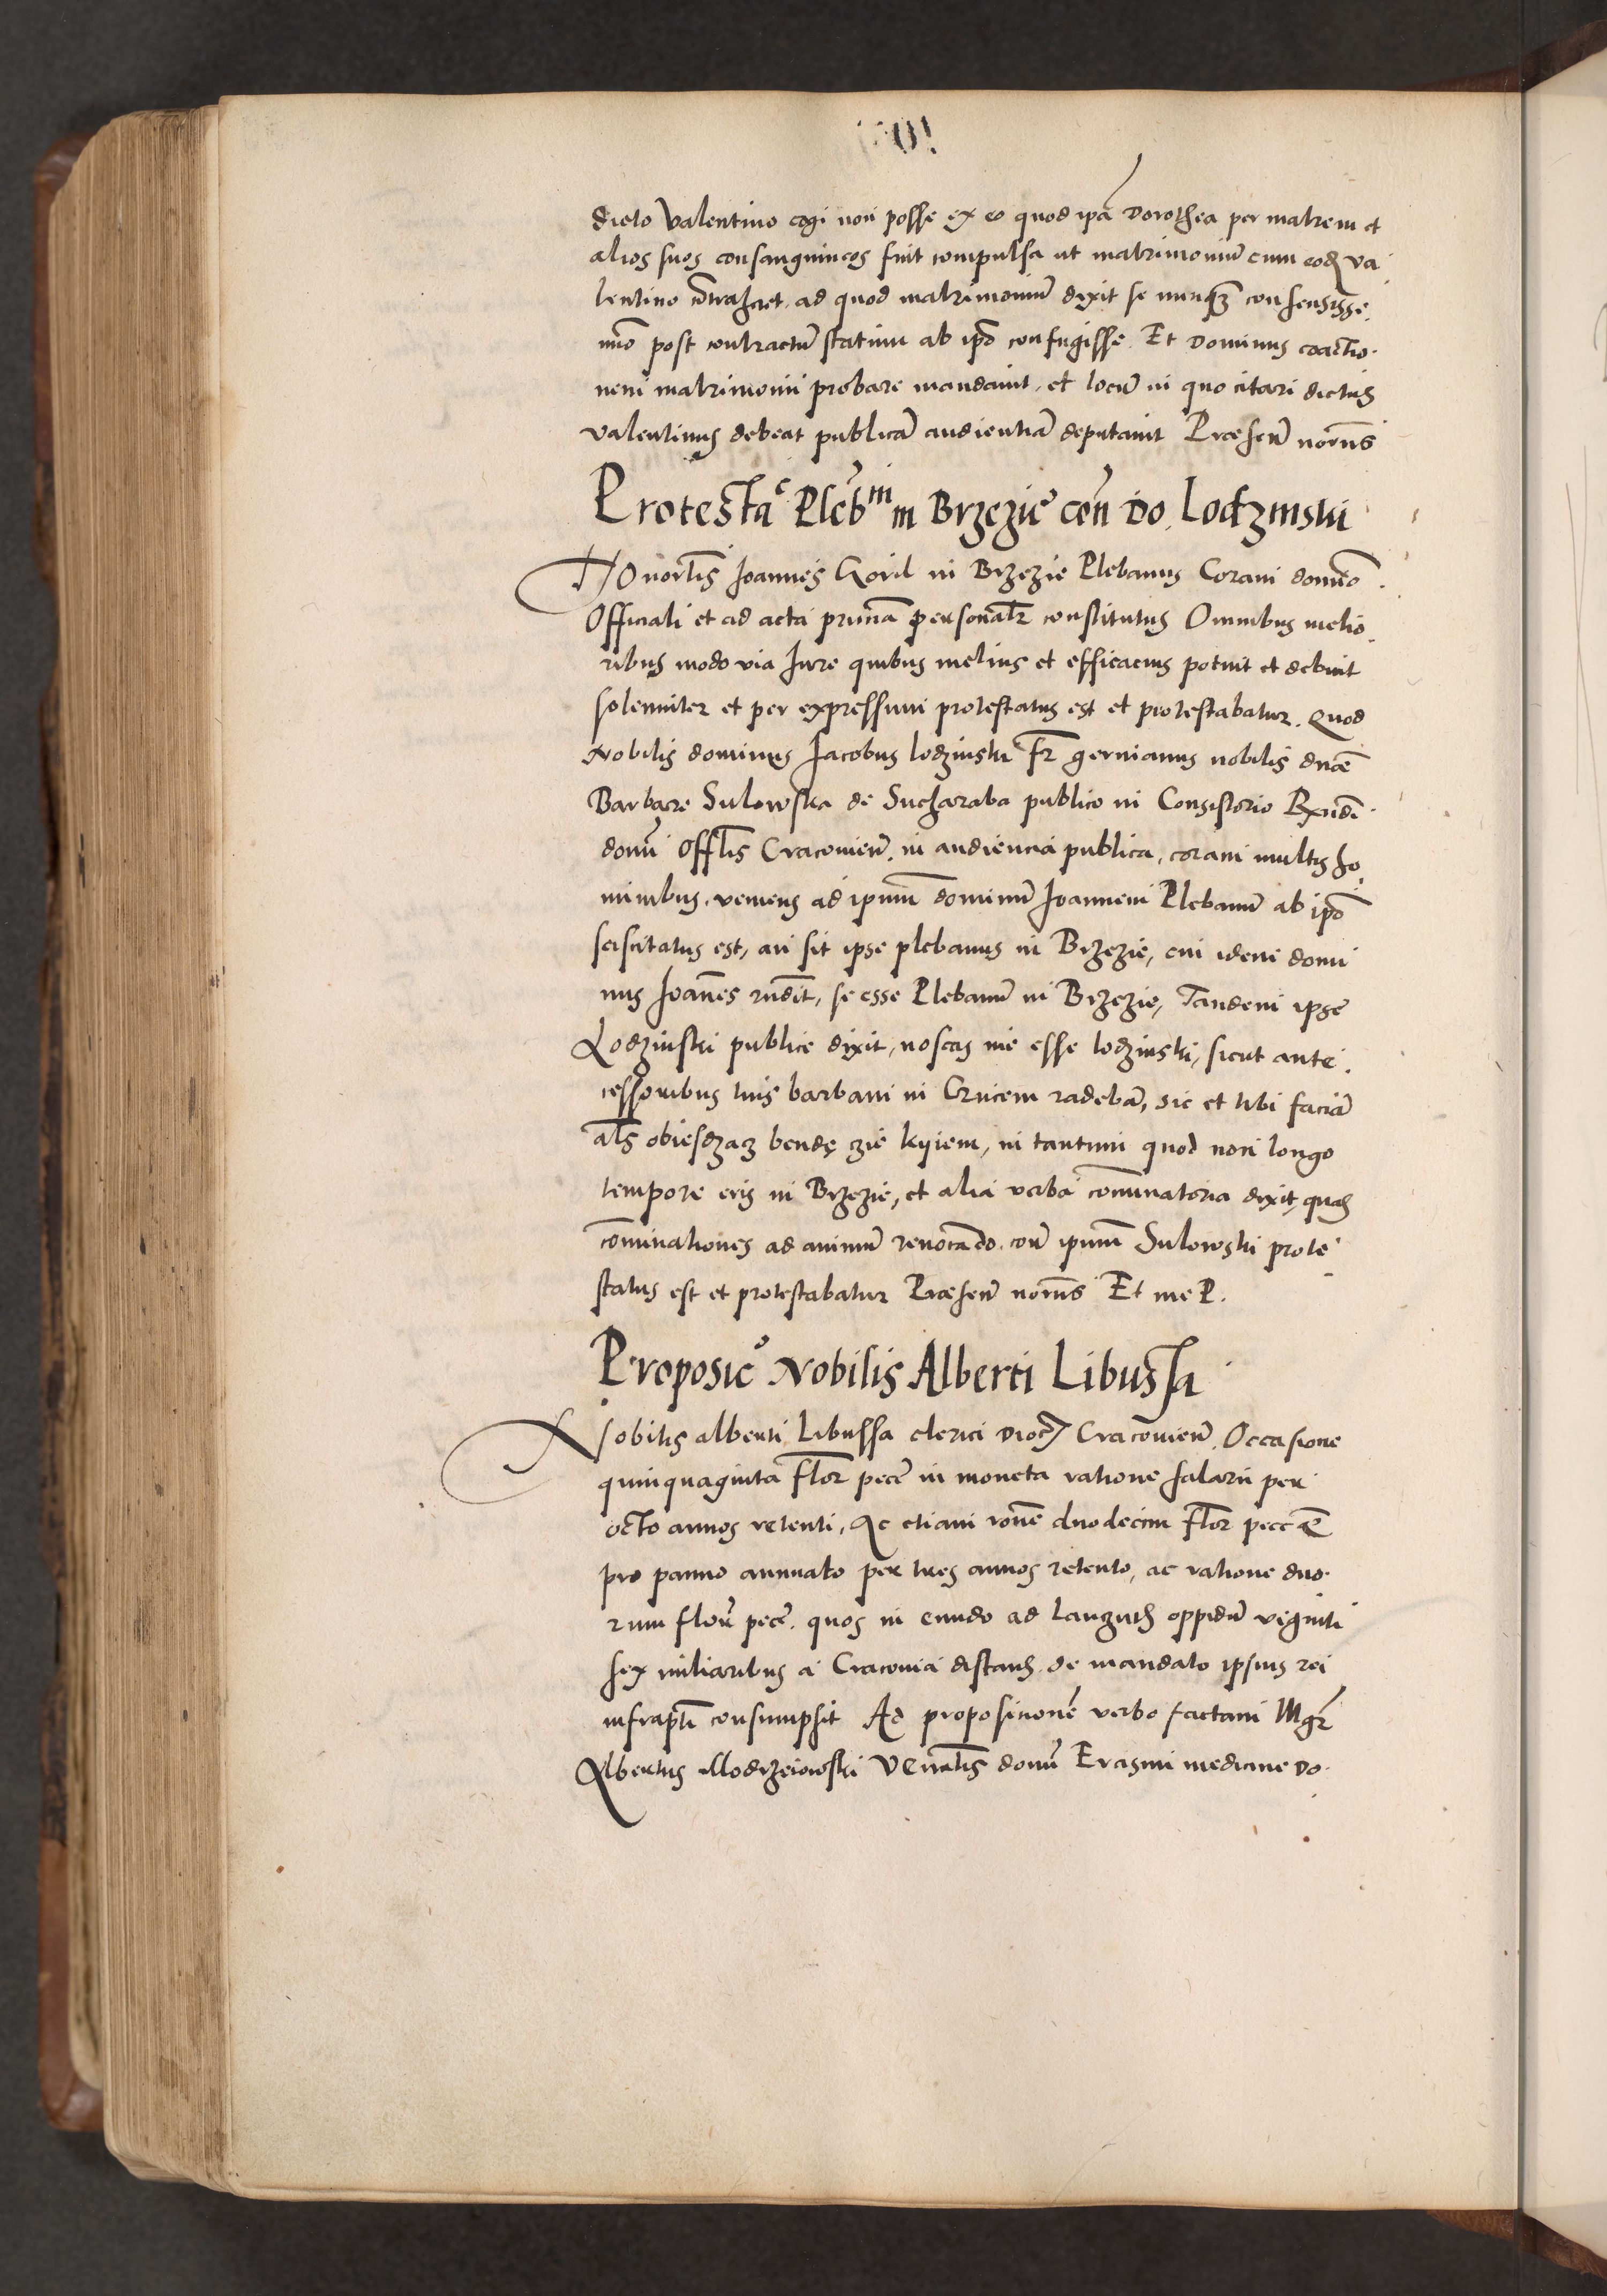 dicto Valentino cogi non posse ex eo quod ipã Dorothea per matrem et
alios suos consanguineos fuit compulsa ut matrimoniũ cum eodẽ Va
lentino cõtraheret, ad quod matrimoniũ dixit se nunq̃ consensisse.
imo post contractũ statim ab ipõ confugisse. Et Dominus coactio-
nem matrimonii probare mandavit, et locũ in quo citari dictus
Valentinus debeat publicã audientiã deputavit Præsen̄ nor̄iis
Protesta᷒ Pleb̄ni in Brzezie᷒ con̄ Do. Lodzinski
Honor̄lis Joannes Goril in Brzezie Plebanus Coram domĩo
Officiali et ad acta pñcia personalr̄ constitutus Omnibus melio-
ribus modo via Jure quibus melius et efficacius potuit et debuit
solenniter et per expressum protestatus est et protestabatur. Quod
Nobilis dominus Jacobus lodzinski Fr̄ germanus nobilis dnæ̃
Barbare Sulowska de Sucharaba publice in Consistorio Rx̄ndi
domĩ Offl̄is Cracovien̄. in audiencia publica, coram multis ho
minibus, veniens ad ipm̄m dominũ Joannem Plebanũ ab ipõ
sciscitatus est, an sit ipse plebanus in Brzezie, cui idem domi
nus Joañes rn̄dit, se esse Plebanũ in Brzezie, Tandem ipse
Lodzinski publice dixit, noscas me esse lodzinski, sicut ante-
cessoribus tuis barbam in Crucem radebã, sic et tibi faciã
al̄s obiesdzacz bendę czie kyiem, in tantum quod non longo
tempore eris in Brzezie, et alia verba com̄inatoria dixit, quas
com̄inationes ad animũ revocãdo. con̄ ipm̄m Sulowski prote-
status est et protestabatur Præsen̄ nor̄iis Et me P.
Proposic᷒ Nobilis Alberti Libussa
Nobilis alberti Libussa clerici Dioc̄ Cracovien̄. Occasione
quinquaginta flor̄ pecc̄ in moneta ratione salarii per
octo annos retenti, Ac etiam rone̅ duodecim flor̄ pecc æ̃
pro panno annuato per tres annos retento, ac ratione duo-
rum flor̄ pecc̄. quos in eundo ad Lanzuth oppidũ viginti
sex miliaribus a Cracovia distan̄. de mandato ipsius rei
infrapt̄i consumpsit Ad propositionẽ verbo factam Mgr̄
Albertus Modrzeiowski Ven̄lis domĩ Erasmi medicine Do-